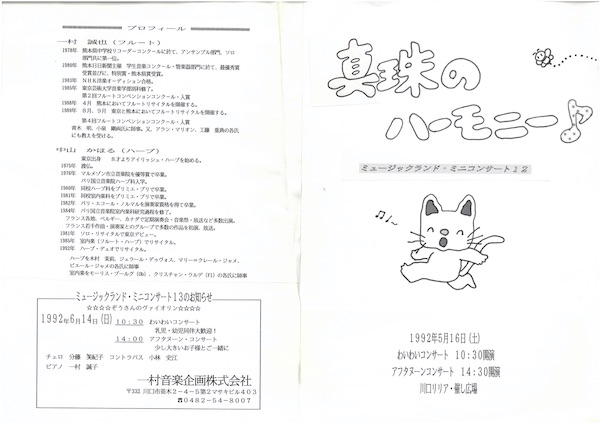 プロフィール
一村 誠也(フルート)
1978年 熊本県中学校リコーダーコンクールに於て、アンサンブル部門、ソロ
部門共に第一位。
1980年 熊本日日新聞主催 学生音楽コンクール・管楽器部門に於て、最優秀賞
受賞並びに、特別賞・熊本県賞受賞。
1983年 NHK洋楽オーディション合格。
1985年 東京芸術大学音楽学部器楽科修了。
第2回フルートコンベンションコンクール・入賞
1988年 4月 熊本においてフルートリサイタルを開催する。
1989年 8月、9月 東京と熊本においてフルートリサイタルを開催する。
第4回フルートコンベンションコンクール・入賞
青木 明、小泉 剛両氏に師事。又、アラン・マリオン、工藤 重典の各氏
にも教えを受ける。
中山 かほる(ハープ)
東京出身 8才よりアイリッシュ・ハープを始める。
1975年 渡仏。
1978年 マルメゾン市立音楽院を優等賞で卒業。
パリ国立音楽院ハープ科入学。
1980年 同校ハープ科をプリミエ・プリで卒業。
1981年 同校室内楽科をプリミエ・プリで卒業。
1982年 パリ・エコール・ノルマルを演奏家資格を得て卒業。
1984年 パリ国立音楽院室内楽科研究課程を修了。
フランス各地、ベルギー、カナダで定期演奏会・音楽祭・放送など多数出演。
フランス若手作曲・演奏家とのグループで多数の作品を初演、放送。
1981年 ソロ・リサイタルで東京デビュー。
1985年 室内楽(フルート・ハープ)でリサイタル。
1992年 ハープ・デュオでリサイタル。
ハープを木村 茉莉、ジェラール・デゥヴォス、マリー=クレール・ジャメ、
ピエール・ジャメの各氏に師事
室内楽をモーリス・ブールグ(Ob)、クリスチャン・ラルデ(Fl)の各氏に師事
ミュージックランド・ミニコンサート13のお知らせ
☆☆☆☆ぞうさんのヴァイオリン☆☆☆☆
1992年6月14日(日) 10:30 わいわいコンサート
乳児・幼児同伴大歓迎!
14:00 アフタヌーン・コンサート
少し大きいお子様とご一緒に
チェロ 分藤 美紀子 コントラバス 小林 史江
ピアノ 一村 誠子
一村音楽企画株式会社
〒332 川口市並木2-4-5第2マサキビル403
☎0482-54-8007
真珠の
ハーモニー♪
ミュージックランド・ミニコンサート12
1992年5月16日(土)
わいわいコンサート 10:30開演
アフタヌーンコンサート 14:30開演
川口リリア・催し広場